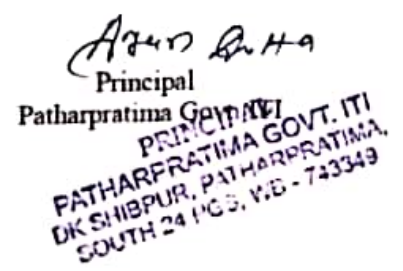 Principal
Patharpratima Govt. ITI
PRINCIPAL
PATHARPRATIMA GOVT. ITI
DK SHIBPUR, PATHARPRATIMA,
SOUTH 24 PGS, W.B - 743349